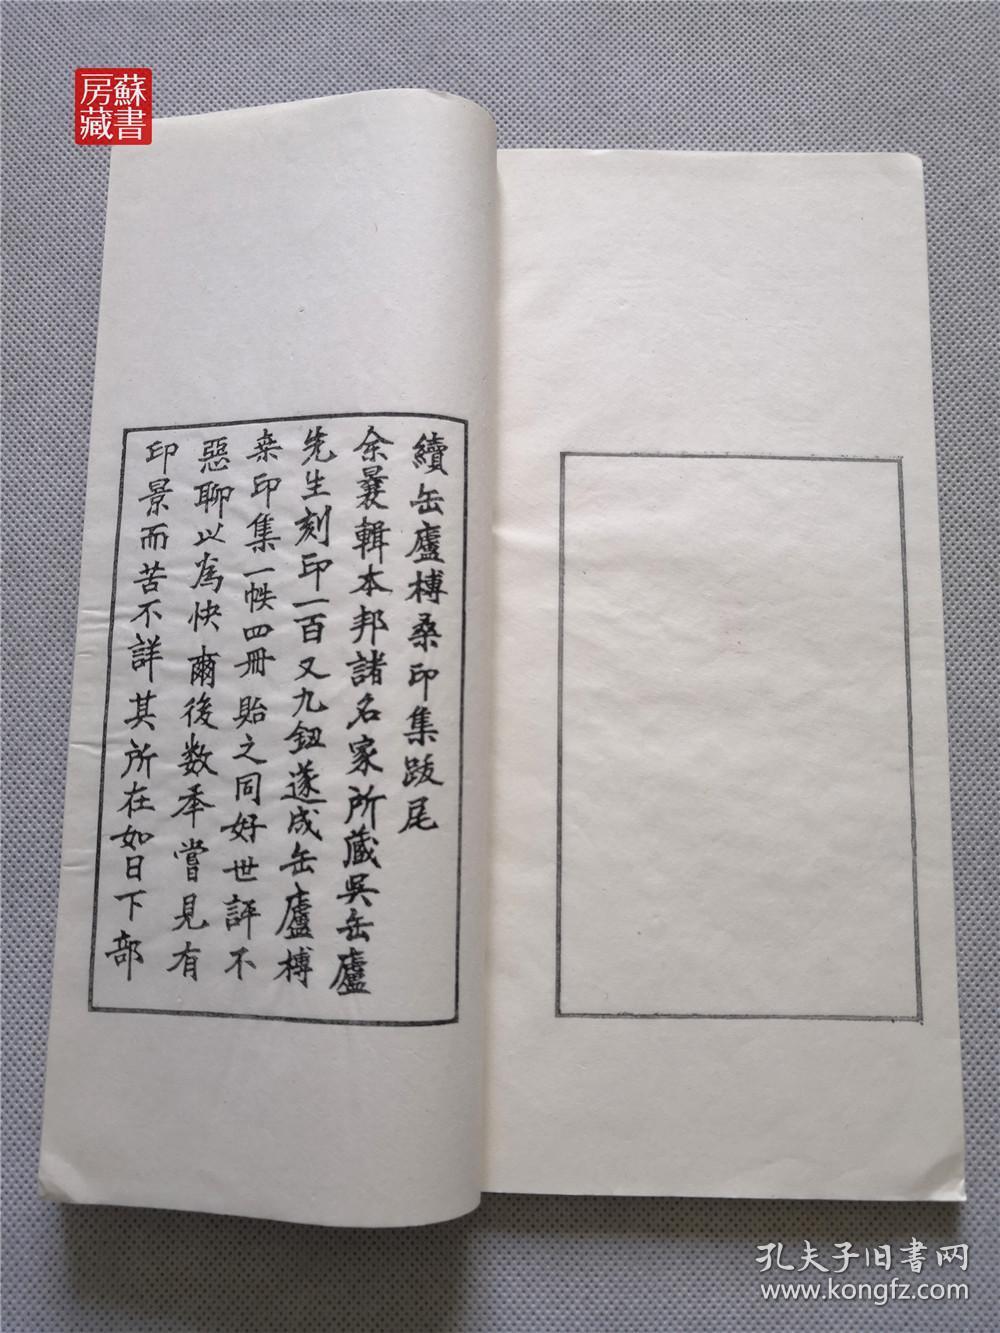 蘇書房藏
續缶廬榑桑印集跋尾
余曩輯本邦諸名家所蔵吳缶廬
先生刻印一百又九鈕遂成缶廬榑
桒印集一帙四冊貽之同好世評不
惡聊以為快爾後数年嘗見有
印景而苦不詳其所在如日下部
孔夫子旧書网
www.kongfz.com